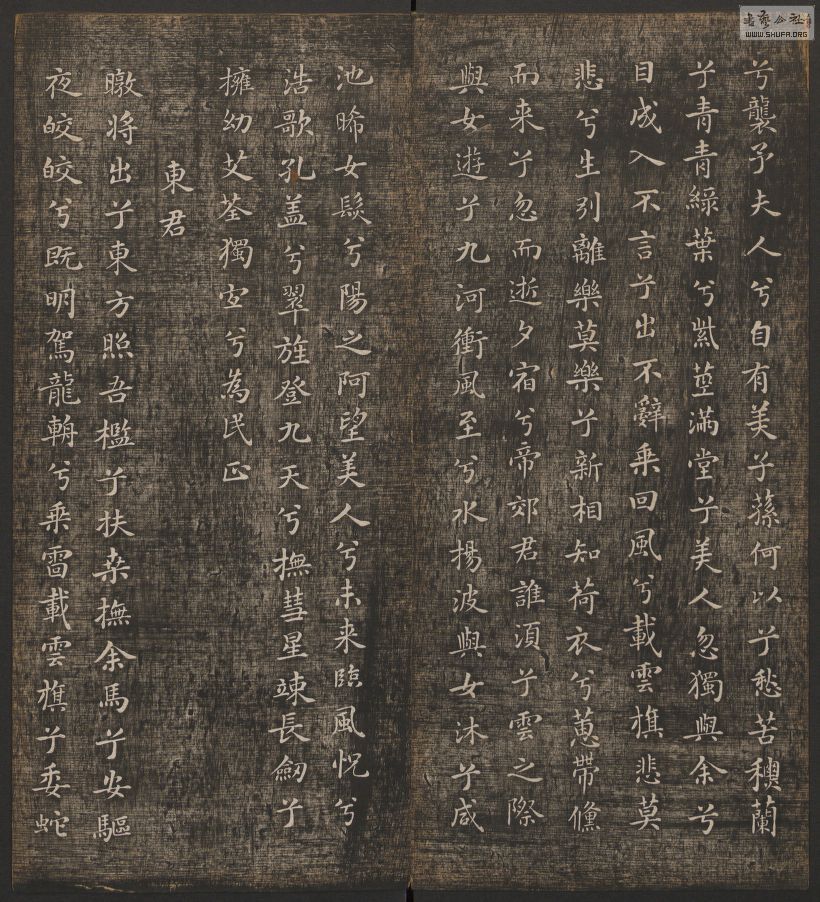 兮襲予夫人兮自有美子蓀何以兮愁苦穠蘭
兮青青綠葉兮紫莖滿堂兮美人忽獨與余兮
目成入不言兮出不辭乘回風兮載雲旗悲莫
悲兮生別離樂莫樂兮新相知荷衣兮蕙帶儵
而来兮忽而逝夕宿兮帝郊君誰須兮雲之際
與女遊兮九河衝風至兮水揚波與女沐兮咸
池晞女髮兮陽之阿望美人兮未来臨風怳兮
浩歌孔盖兮翠旌登九天兮撫彗星竦長劒兮
擁幼艾荃獨宜兮為民正
東君
暾将出兮東方照吾檻兮扶桑撫余馬兮安驅
夜皎皎兮既明駕龍輈兮乘雷載雲旗兮委蛇
書藝公社
WWW.SHUFA.ORG